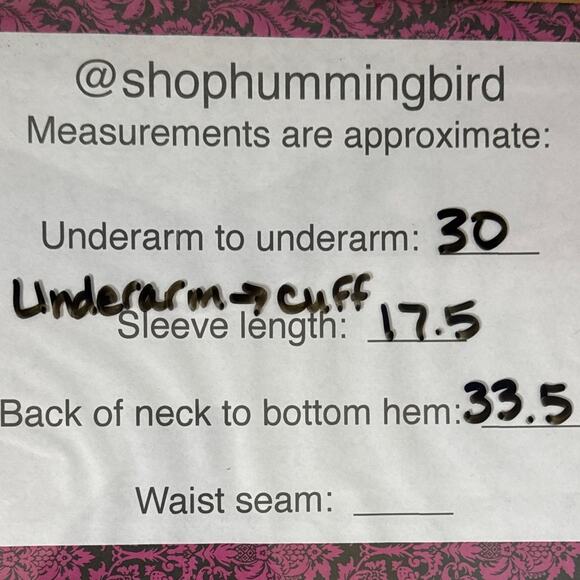 @shophummingbird
Measurements are approximate:
Underarm to underarm: 30
Underarm → cuff
Sleeve length: 17.5
Back of neck to bottom hem: 33.5
Waist seam: